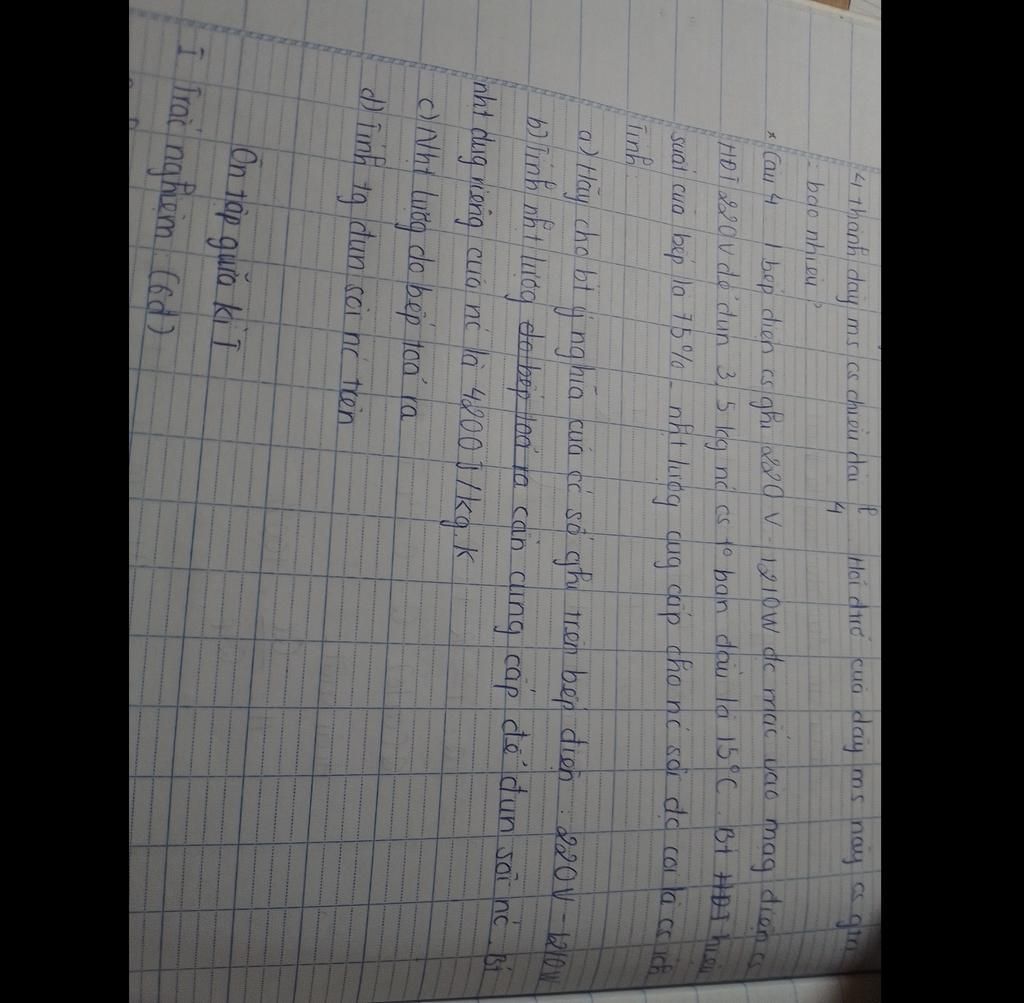 4 thành dây ms cs chiều dài l/4. Hỏi đtrở của dây ms này cs gtrị
- bao nhiêu?
* Câu 4 1 bếp điện cs ghi 220V - 1210W đc mắc vào mạg điện cs
HĐT 220V để đun 3,5 kg nc cs t° ban đầu là 15°C. Bt hiệu
suất của bếp là 75%. nht lượg cug cấp cho nc sôi đc coi là cs ích
Tính:
a) Hãy cho bt ý nghĩa của cc số ghi trên bếp điện: 220V - 1210W
b) Tính nht lượg do bếp toả ra cần cung cấp để đun sôi nc. Bt
nht dug riêng của nc là 4200J/kg.K
c) Nht lượg do bếp toả ra
d) Tính tg đun sôi nc trên
Ôn tập giữa kì I
I Trắc nghiệm (6đ)